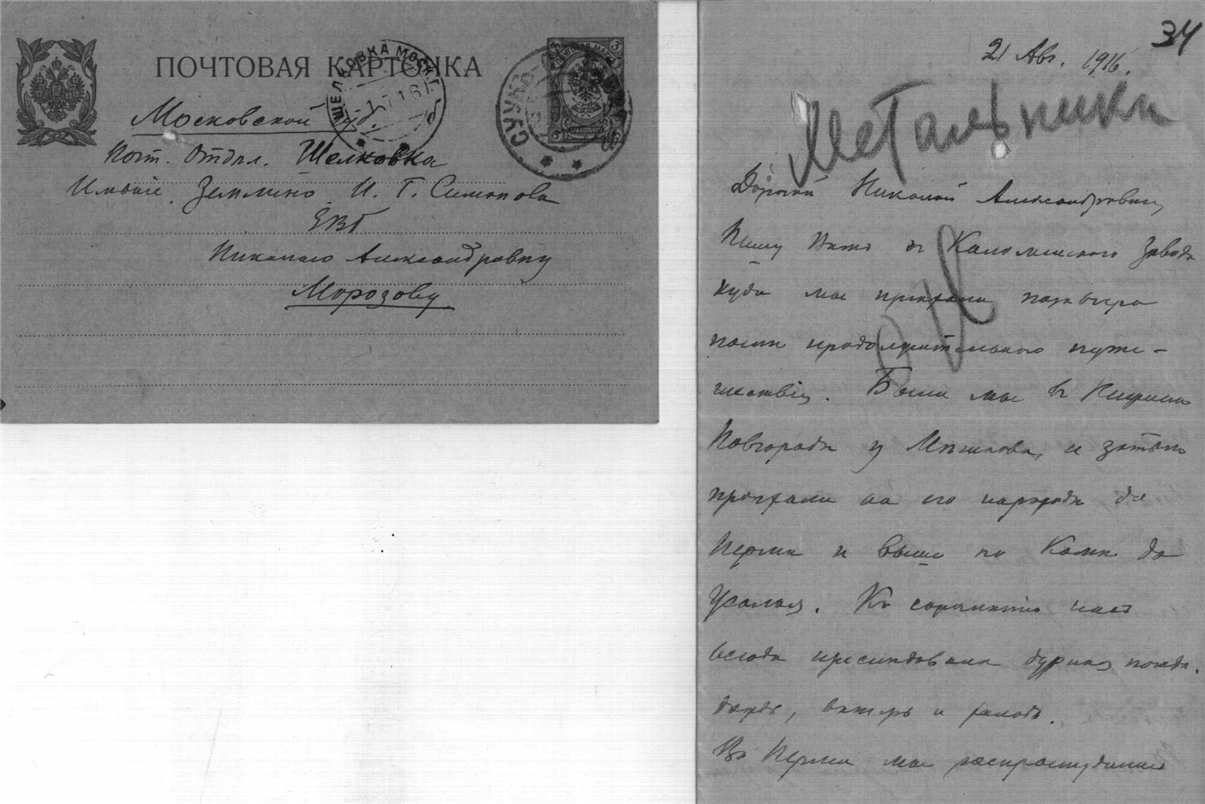 ПОЧТОВАЯ КАРТОЧКА
Московской губ
Почт. Отдѣл. Шелковка
Имѣніе Земляно И. Г. Симонова
ЕВБ
Николаю Александровичу
Морозову
34
21 Авг. 1916.
Метальники
Дорогой Николай Александровичъ,
Пишу Вамъ съ Коломенского Завода
куда мы пріѣхали позавчера
послѣ продолжительного путе-
шествія. Были мы въ Нижнемъ
Новгородѣ у Мѣшкова, и затѣмъ
проѣхали на его пароходѣ до
Перми и выше по Камѣ до
Усолья. Къ сожалѣнію насъ
всюду преслѣдовала дурная погода.
дождь, вѣтеръ и холодъ.
Въ Перми мы распростудились